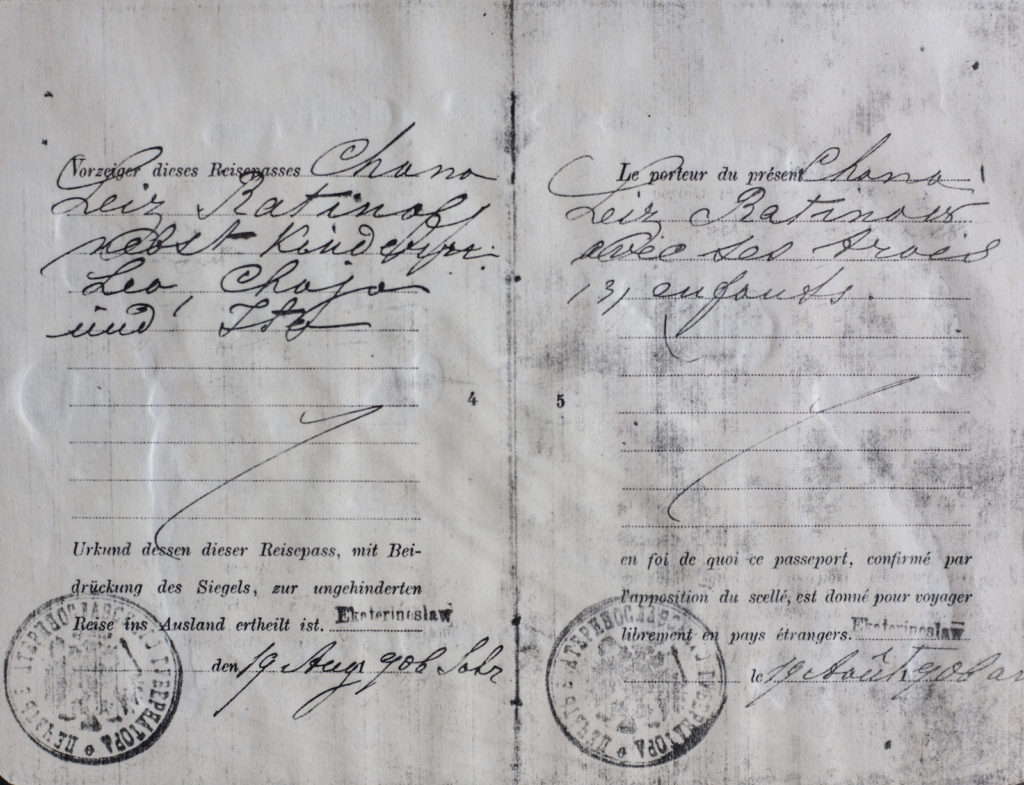 Vorzeiger dieses Reisepasses Chana
Leiz Ratinoff
nebst Kindern:
Leo, Chaja
und Ita
4
Urkund dessen dieser Reisepass, mit Bei-
drückung des Siegels, zur ungehinderten
Reise ins Ausland ertheilt ist. Ekaterinoslaw
den 19 Aug 906 Jahr
ПЕЧАТЬ ЕКАТЕРИНОСЛАВСКАГО ГУБЕРНАТОРА
Le porteur du présent Chana
Leiz Ratinoff
avec ses trois
/3/ enfants.
5
en foi de quoi ce passeport, confirmé par
l'apposition du scellé, est donné pour voyager
librement en pays étrangers. Ekaterinoslaw
le 19 Août 906 an
ПЕЧАТЬ ЕКАТЕРИНОСЛАВСКАГО ГУБЕРНАТОРА